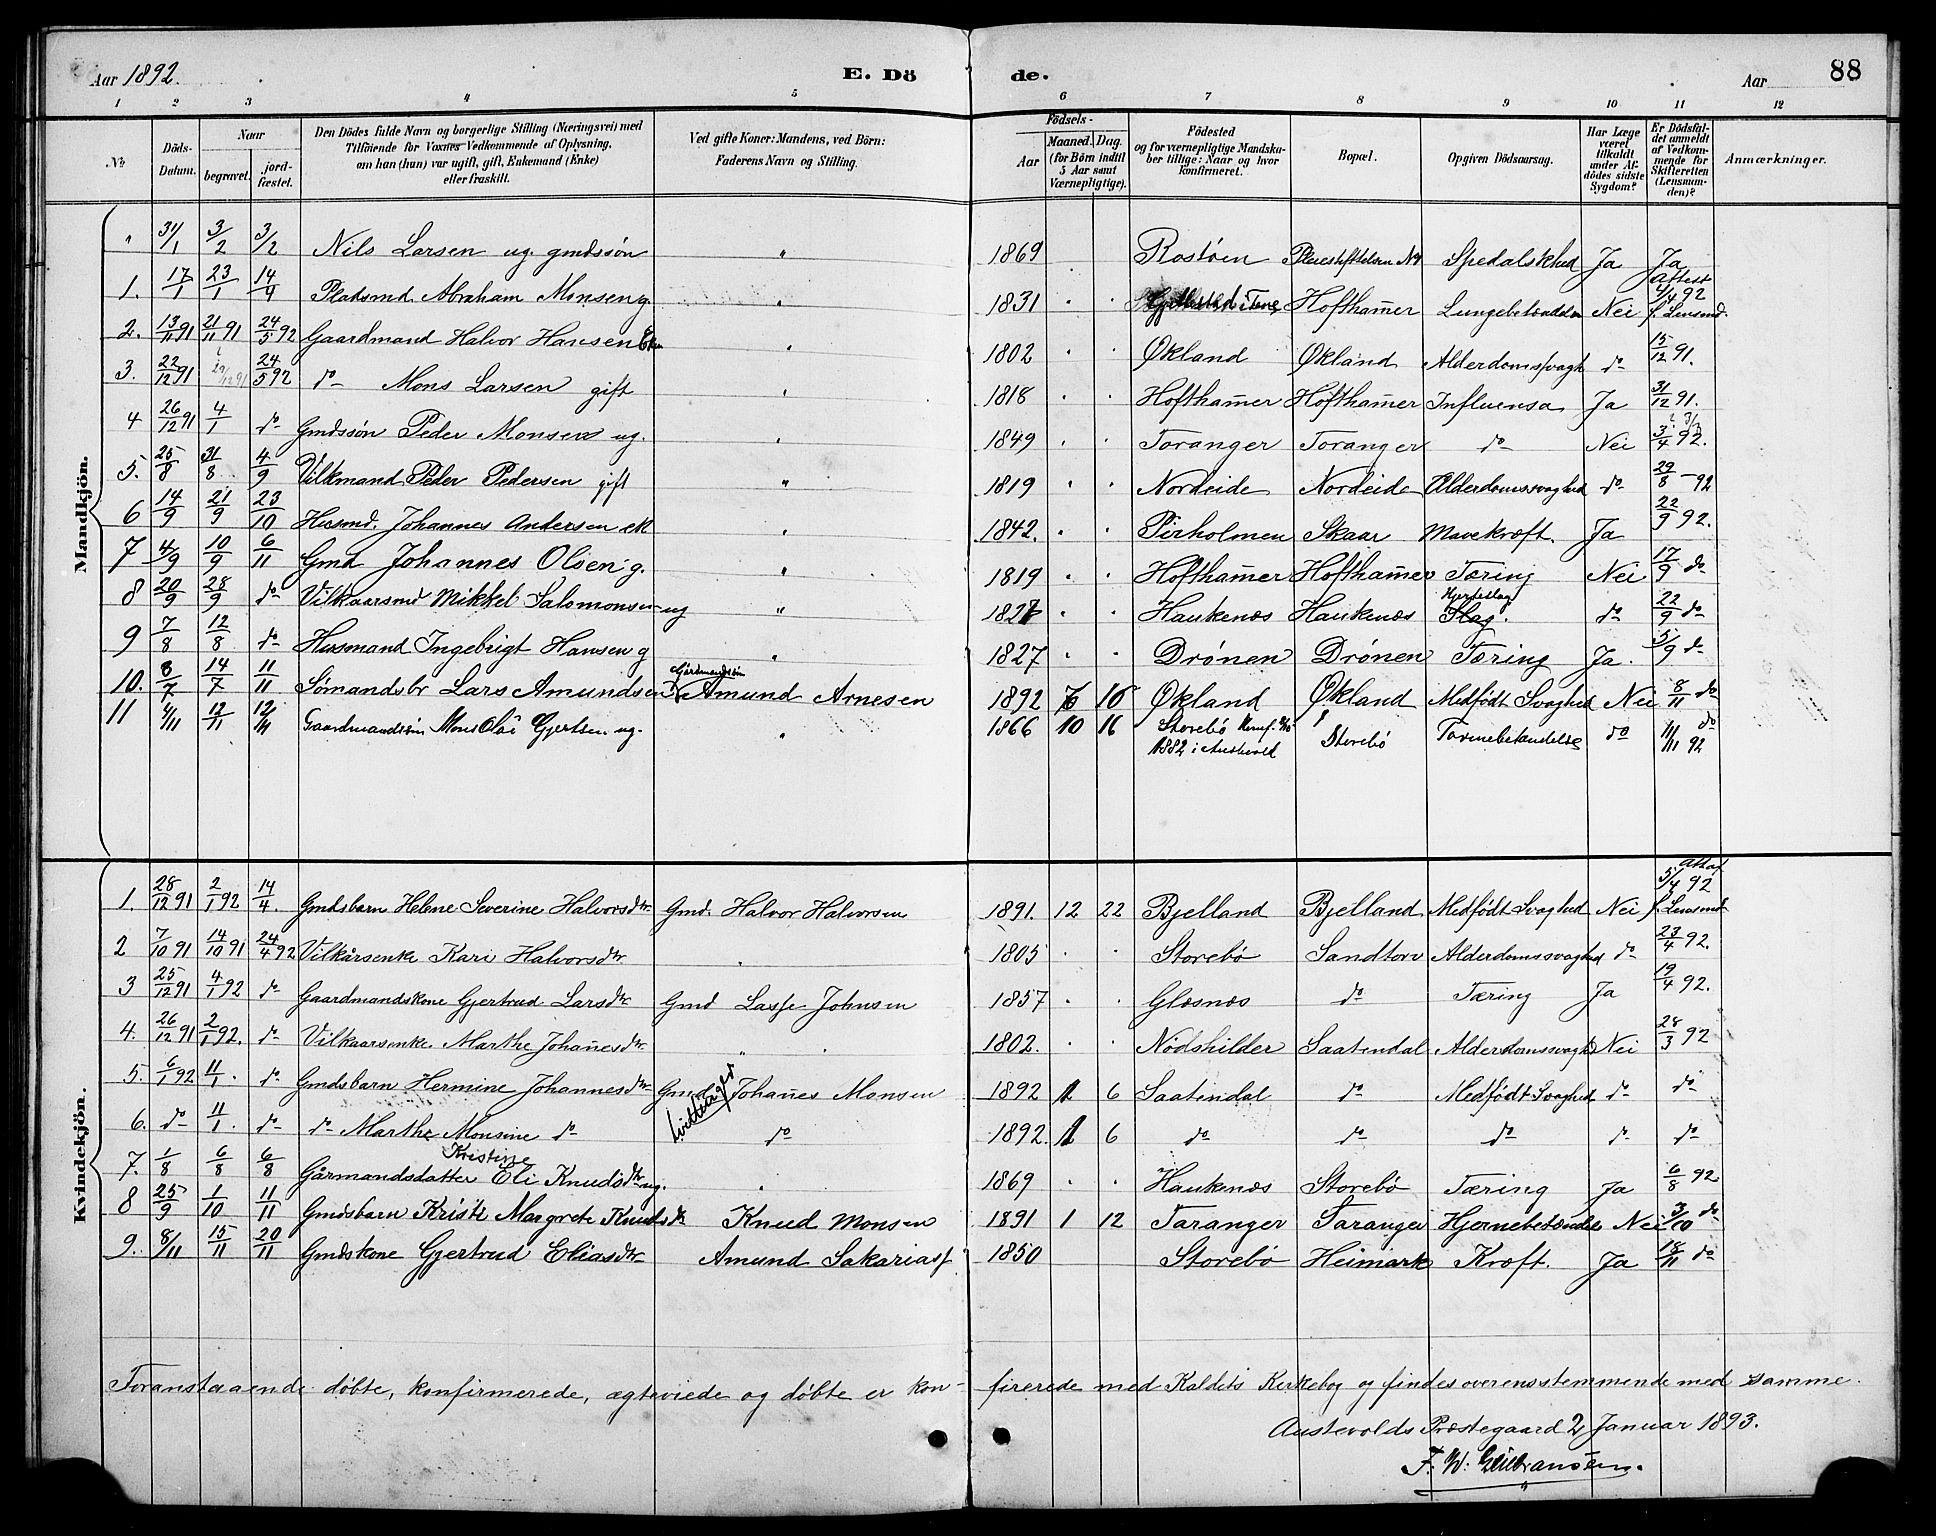 Aar 1892. E. Dö de. Aar 88
1 2 3 4 5 6 7 8 9 10 11 12
No Döds-Datum. Naar begravet. jord-fæstet. Den Dödes fulde Navn og borgerlige Stilling (Næringsvei) med Tilföiende for Voxnes Vedkommende af Oplysning, om han (hun) var ugift, gift, Enkemand (Enke) eller fraskilt. Ved gifte Koner: Mandens, ved Börn: Faderens Navn og Stilling. Födsels- Aar Maaned. Dag. (for Börn indtil 5 Aar samt Værnepligtige). Födested og for værnepligtige Mandskaber tillige: Naar og hvor konfirmeret. Bopæl. Opgiven Dödsaarsag. Har Læge været tilkaldt under Afdödes sidste Sygdom? Er Dödsfaldet anmeldt af Vedkommende for Skifteretten (Lensmanden)? Anmærkninger.
Mandkjön.
" 31/1 3/2 3/2 Nils Larsen ug. gmdssön " 1869 Rostöen Spedalskhed Ja Ja
1. 17/1 23/1 14/4 Pladsmd. Abraham Monsen g. " 1831 " " Hoftham̄er Lungebetændelse Nei Attest 4/4 92 f. Lensmd.
2. 13/11 91 21/11 91 24/5 92 Gaardmand Halvor Hansen Ekm " 1802 " " Økland Økland Alderdomssvagh do 15/12 91.
3. 22/12 91 29/12 91 24/5 92 do Mons Larsen gift " 1818 " " Hoftham̄er Hoftham̄er Influensa Ja 31/12 91.
4 26/12 91 4/1 do Gmdssön Peder Monsen ug. " 1849 " " Toranger Toranger do Nei 3/4 92.
5. 25/8 31/8 4/9 Vilkmand Peder Pedersen gift " 1819 " " Nordeide Nordeide Alderdomssvaghed do 29/8 - 92
6 14/9 21/9 23/10 Husmd. Johannes Andersen ek " 1842. " " Pirholmen Skaar Mavekræft. Ja 22/9 92.
7 4/9 10/9 6/11 Gmd Johannes Olsen g. " 1819 " " Hoftham̄er Hoftham̄er Tæring Nei 17/9 do
8 20/9 28/9 do Vilkaarsmd Mikkel Salomonsen ug " 1827 " " Haukenæs Haukenæs Hjerteslag Slag. do 22/9 do
9 7/8 12/8 do Husmand Ingebrigt Hansen g " 1827 " " Drönen Drönen Tæring Ja. 5/9 do
10. 8/7 14/7 11/11 Sömandsbr Lars Amundsen Gårdmandssön Amund Arnesen 1892 6 16 Økland Økland Medfödt Svaghed Nei 8/11 do
11 4/11 12/11 12/11 Gaardmandssön Mons Olai Gjertsen ug. " 1866 10 16 Storebö Konf. 1882 i Austevold Storebö Tarmebetændelse do 11/11 92 do
Kvindekjön.
1. 28/12 91 2/1 92 14/4. Gmdsbarn Helene Severine Halvorsdtr Gmd. Halvor Halvorsen 1891. 12 22 Bjelland Bjelland Medfödt Svaghed Nei 5/4 92 f. Lensmd
2 7/10 91 14/10 91 24/4 92 Vilkårsenke Kari Halvorsdtr " 1805 " " Storebö Sandtorv Alderdomssvaghed do 23/4 92.
3 25/12 91 4/1 92 do Gaardmandskone Gjertrud Larsdtr Gmd Lasse Johnsen 1857 " " Glæsnæs do Tæring Ja 19/4 92.
4. 26/12 91 2/1 92. do Vilkaarsenke Marthe Johan̄esdtr " 1802. " " Nödshilder Saatendal Alderdomssvagh Nei 28/3 92
5. 6/1 92 11/1. do Gmdsbarn Hermine Johannesdtr Gmd Johan̄es Monsen 1892 1 6 Saatendal do Medfödt Svaghed do do
6. do 11/1. do do Marthe Monsine do tvillinger do 1892. 1 6 do do do do do
7. 1/8 6/8 6/8 Gårmandsdatter Eli Kristine Knudsdtr ug. " 1869 " " Haukenæs Storebö Tæring Ja 6/8 92
8 25/9 1/10 11/11 Gmdsbarn Kristi Margrete Knudsdtr Knud Monsen 1891 1 12 Taranger Taranger Hjernebetændelse Nei 3/10 do
9. 8/11 15/11 20/11 Gmdskone Gjertrud Eliasdtr Amund Sakariass. 1850 Storebö Heimark Kræft. Ja 18/11 do
Foranstaaende döbte, konfirmerede, ægteviede og döbte er kon-fererede med Kaldets Kirkebog og findes overensstemmende med samme.
Austevolds Præstegaard 2 Januar 1893.